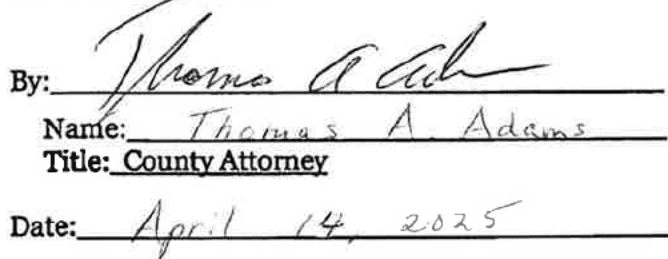 By: Thomas A Adams
Name: Thomas A. Adams
Title: County Attorney
Date: April 14, 2025